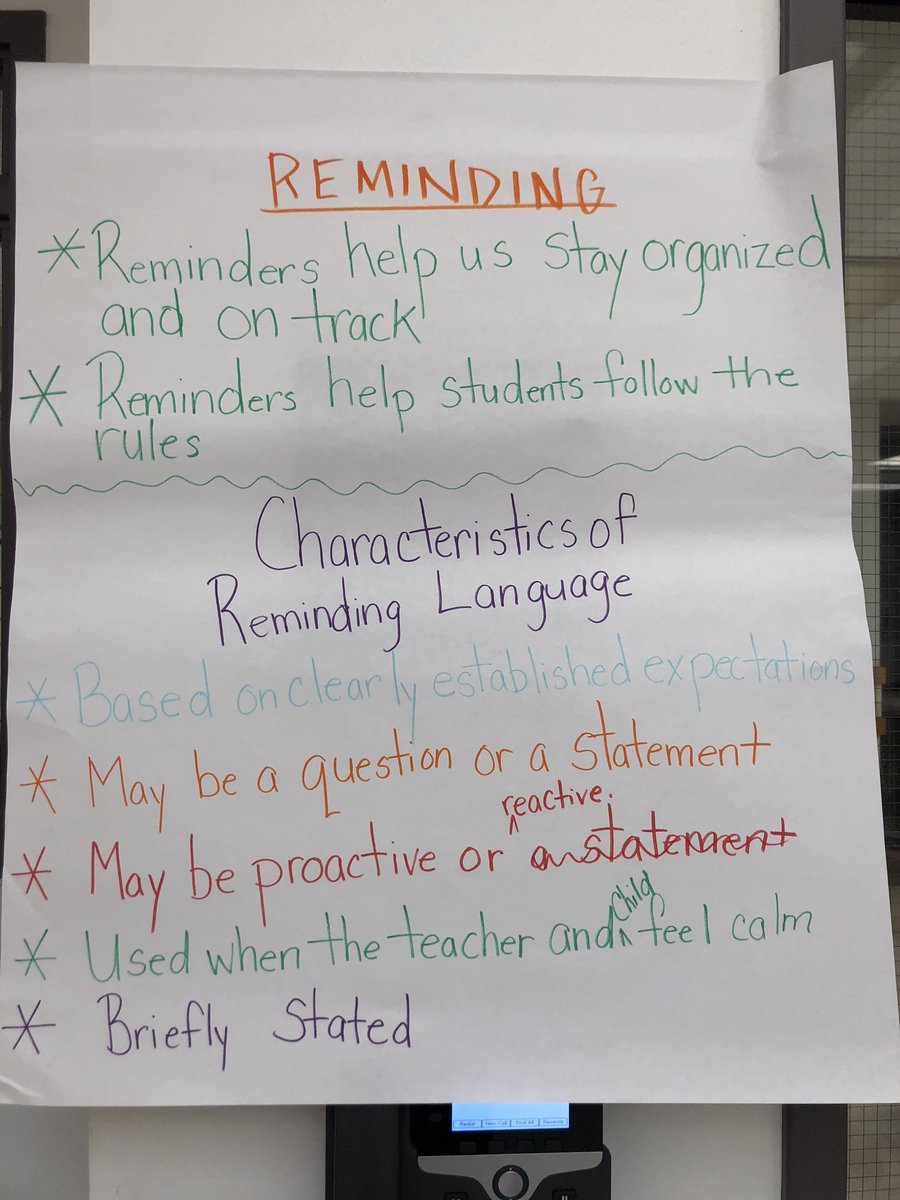 REMINDING
* Reminders help us stay organized
and on track
* Reminders help students follow the
rules
Characteristics of
Reminding Language
* Based on clearly established expectations
* May be a question or a statement
reactive.
* May be proactive or a statement
child
* Used when the teacher and feel calm
* Briefly Stated
Redial New Call Fwd All Recents